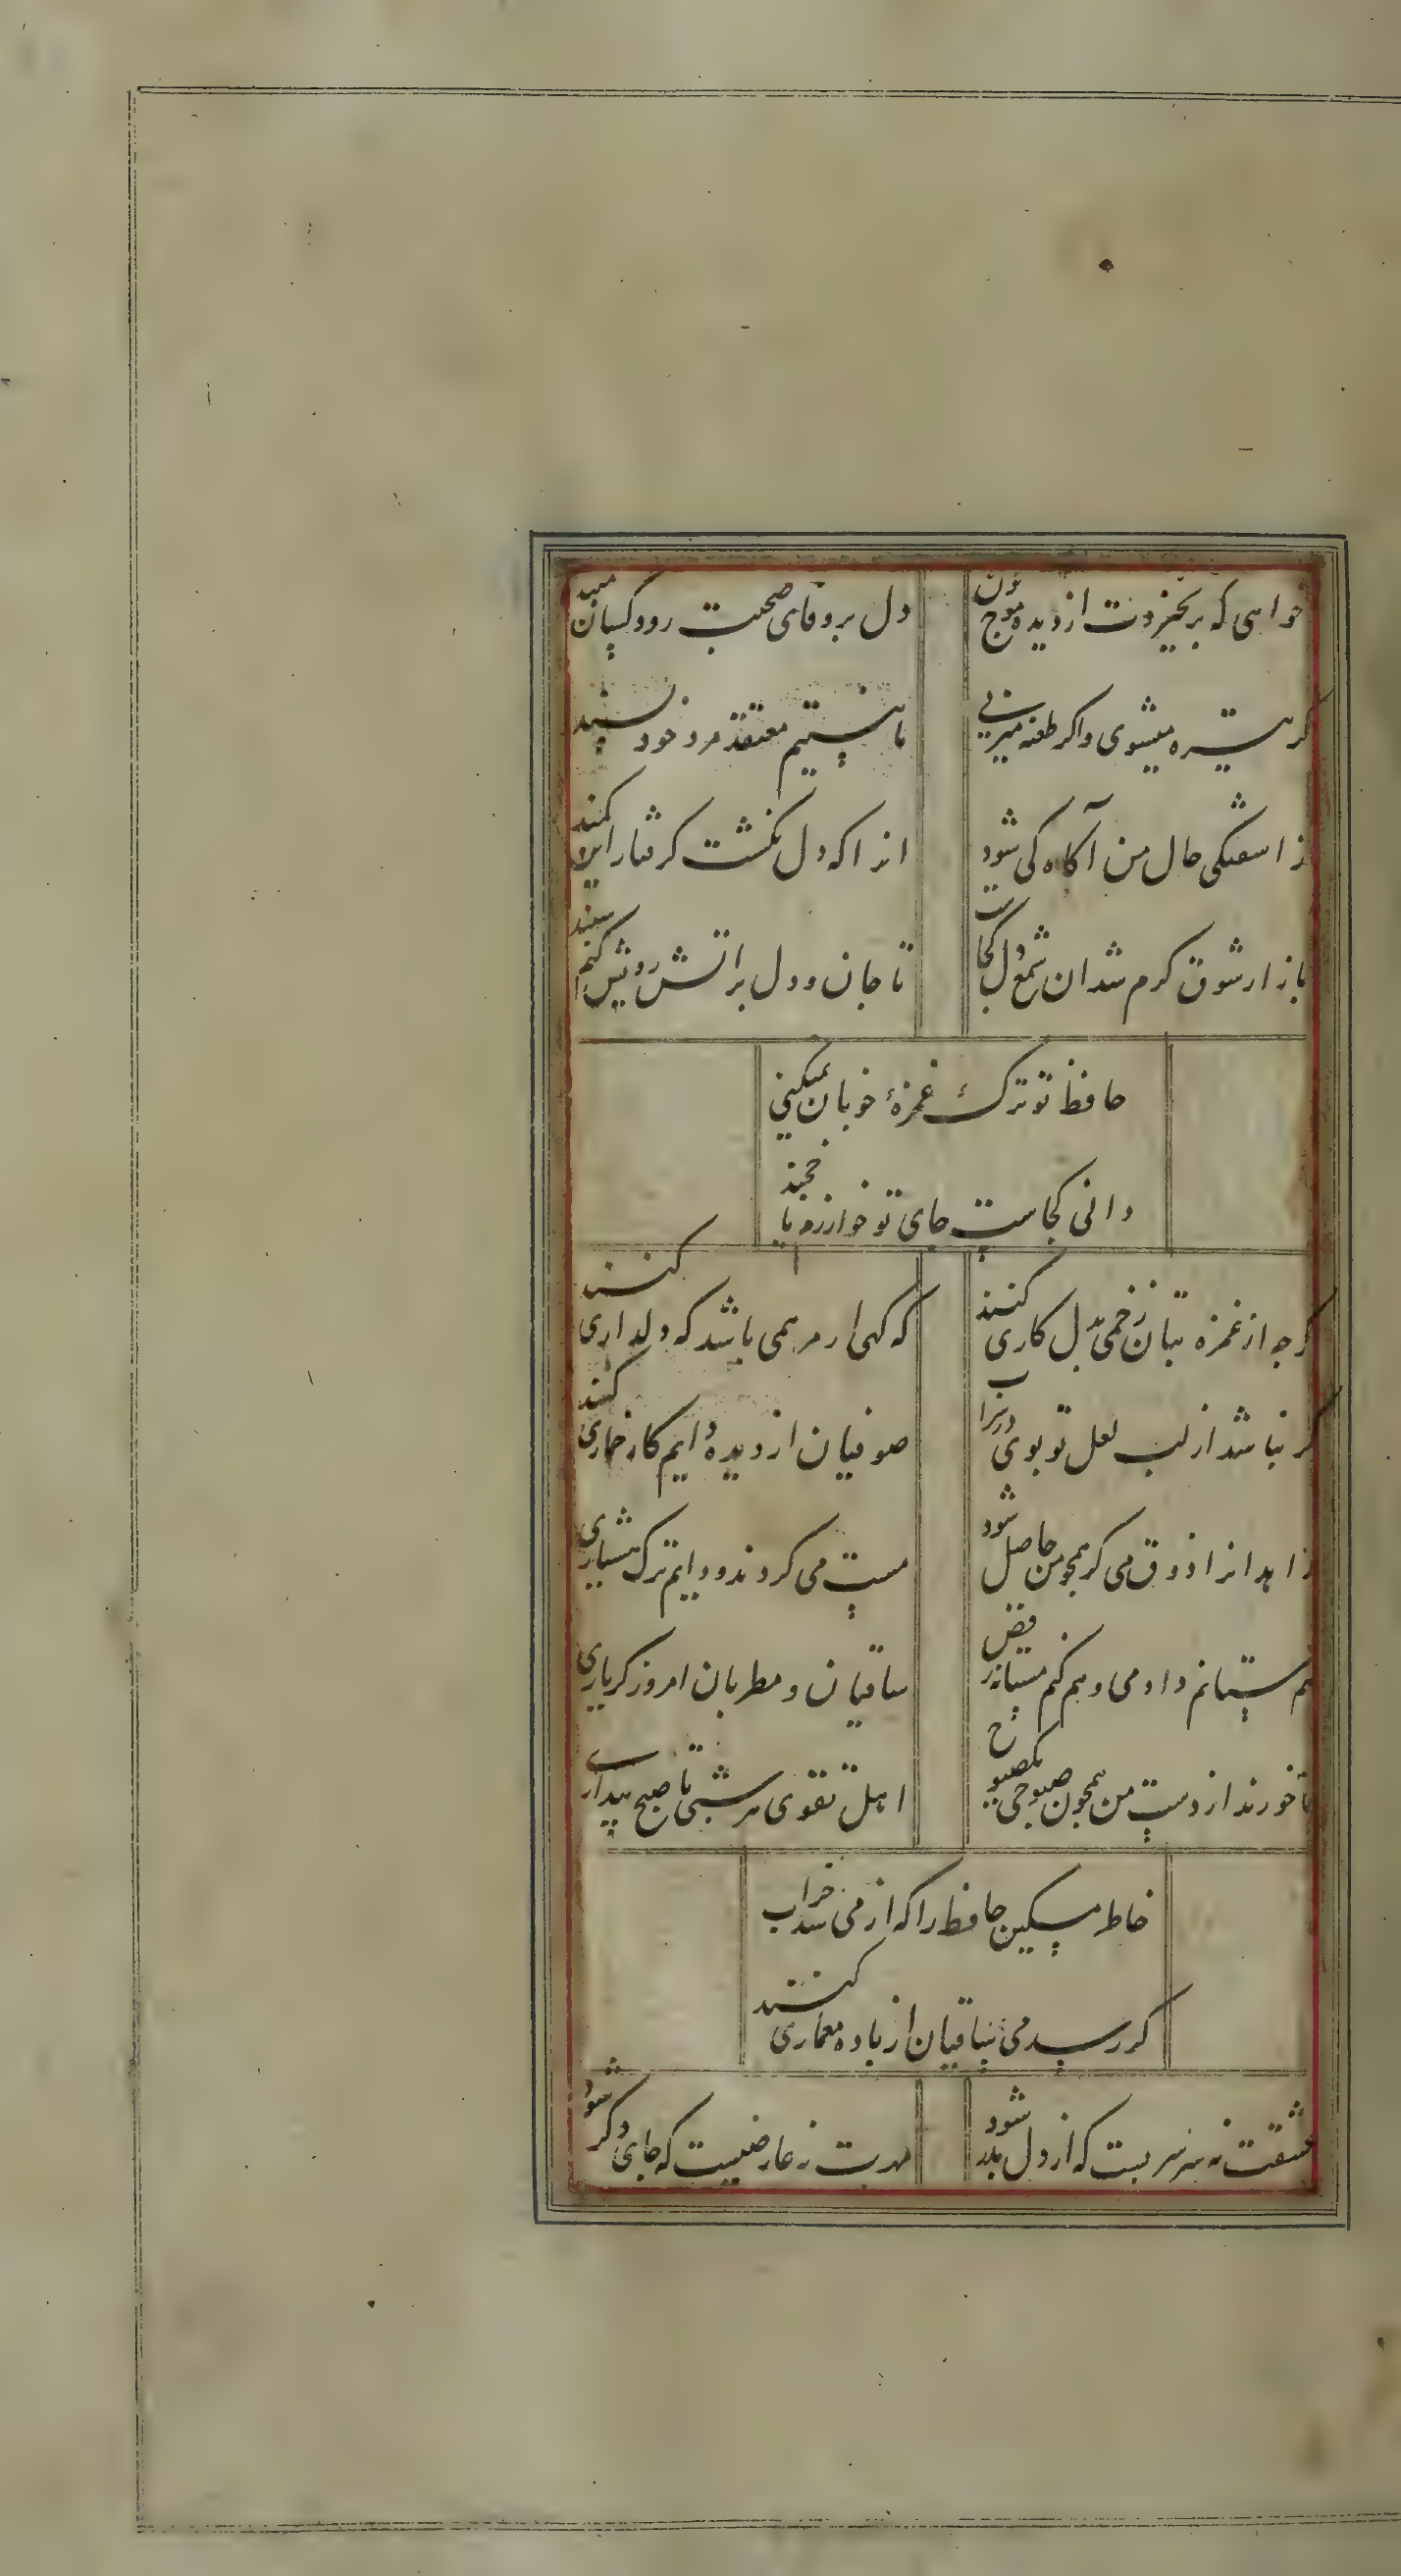 خواهی که برنخیزدت از دیده موج خون
دل بر وفای صحبت رود کسان مبند
گر خیره میشوی و اگر طعنه میزنی
ما نیستیم معتقد مرد خود پسند
ز اشفتگی حال من آگاه کی شود
انرا که دل نگشت گرفتار این کمند
بازار شوق گرم شد ان شمع دل کجاست
تا جان و دل بر اتش رویش کنم سپند
حافظ تو ترک غمزهٔ خوبان نمیکنی
دانی کجاست جای تو خوارزم یا خجند
گرچه از غمزه بتان زخمی بدل کاری کنند
که گهی ار مرهمی باشد که دلداری کنند
گر نباشد از لب لعل تو بوی در شراب
صوفیان از دیده دایم کار خماری کنند
زاهدانرا ذوق می گر همچو من حاصل شود
مست می گردند و دایم ترک هشیاری
هم ستانم داد می و هم کنم مستانه رقص
ساقیان و مطربان امروز گر یاری
تا خورند از دست من همچون صبوحی یک صبوح
اهل تقوی هر شبی تا صبح بیداری
خاطر مسکین حافظ را که از می شد خراب
گر رسد می ساقیان از باده معماری کنند
عشقت نه سرسریست که از دل بدر شود
مهرت نه عارضیست که جای دگر شود